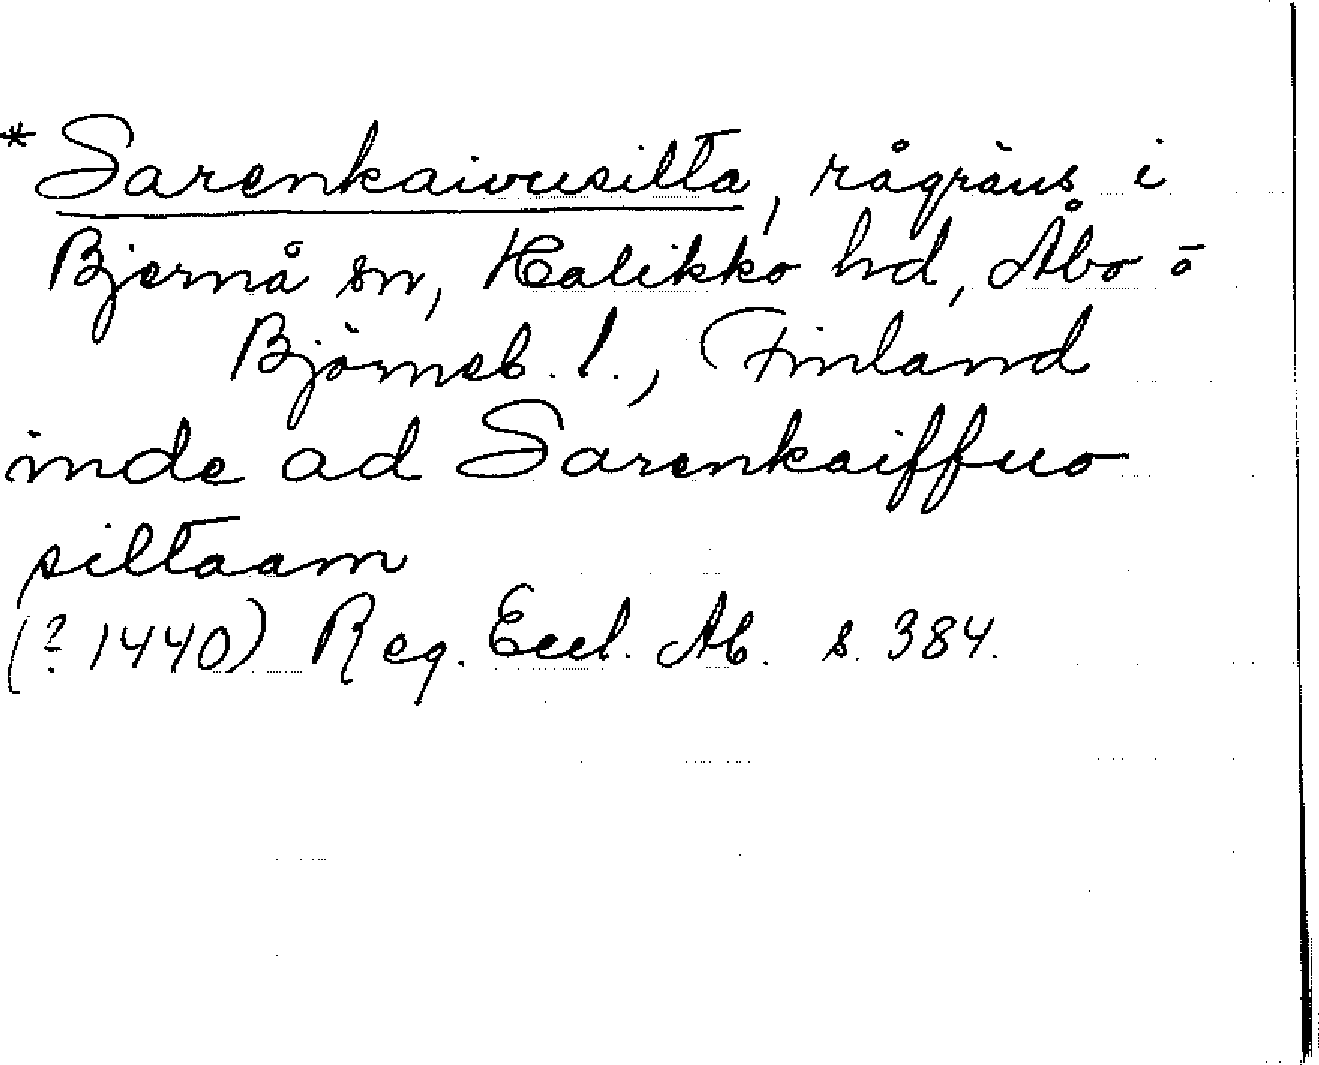 * Sarenkaivusilta, rågräns i
Bjernå sn, Halikko hd, Åbo o
Björneb. l., Finland
inde ad Sarenkaiffuo
siltaam
(? 1440) Reg. Eccl. Ab. s. 384.